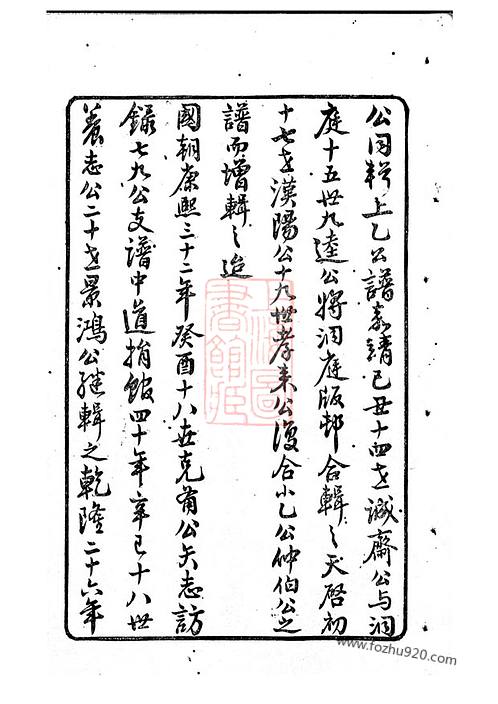 公同輯上乙公譜嘉靖己丑十四世誠齋公与洞
庭十五世九逵公將洞庭版邨合輯之天啓初
十七世漢陽公十九世孝来公復合小乙公仲伯公之
譜而增輯之迨
國朝康熙三十二年癸酉十八世克莆公矢志訪
錄七九公支譜中道捐館四十年辛巳十八世
養志公二十世景鴻公繼輯之乾隆二十六年
上海圖書館藏
www.fozhu920.com